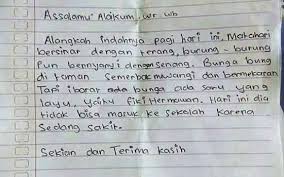 Assalamu' Alaikum, wr wb
Alangkah indahnya pagi hari ini. Matahari
bersinar dengan terang, burung - burung
Pun bernyanyi dengan senang. Bunga bung
di taman Semerbak mewangi dan bermekaran
Tapi ibarat bunga ada satu yang
layu, yaitu Fiki Hermawan. Hari ini dia
tidak bisa masuk ke sekolah karena
Sedang sakit.
Sekian dan Terima kasih